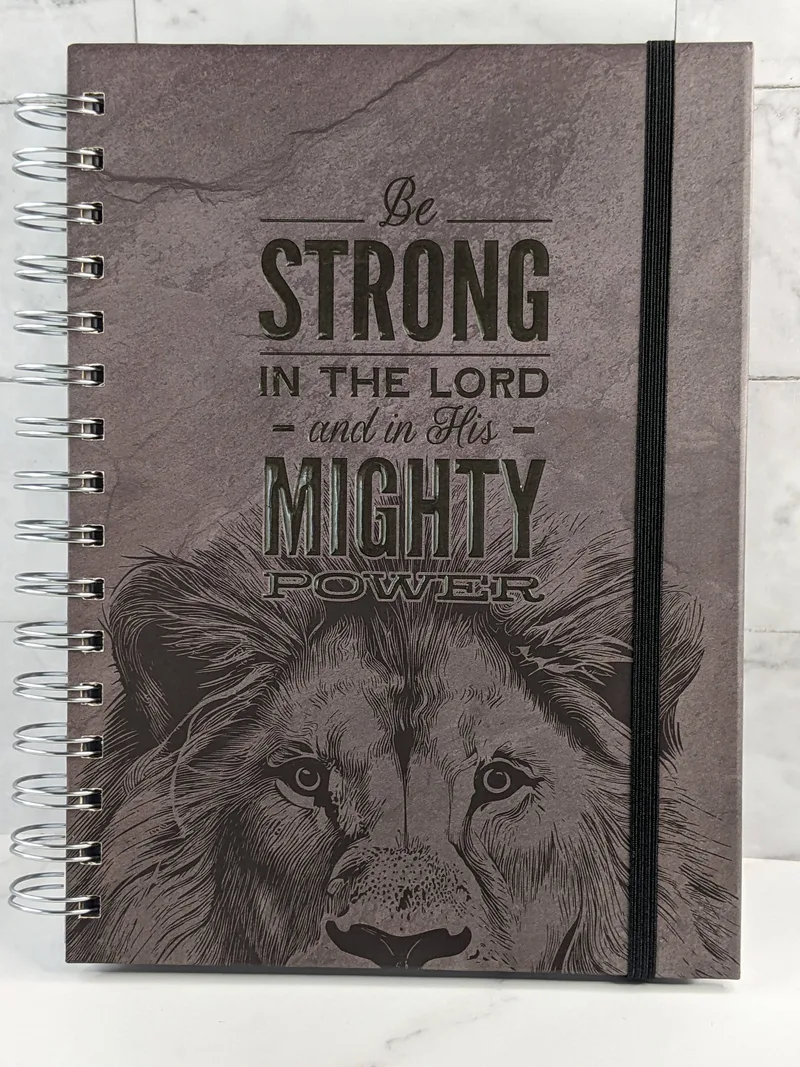 Be
STRONG
IN THE LORD
- and in His -
MIGHTY
POWER